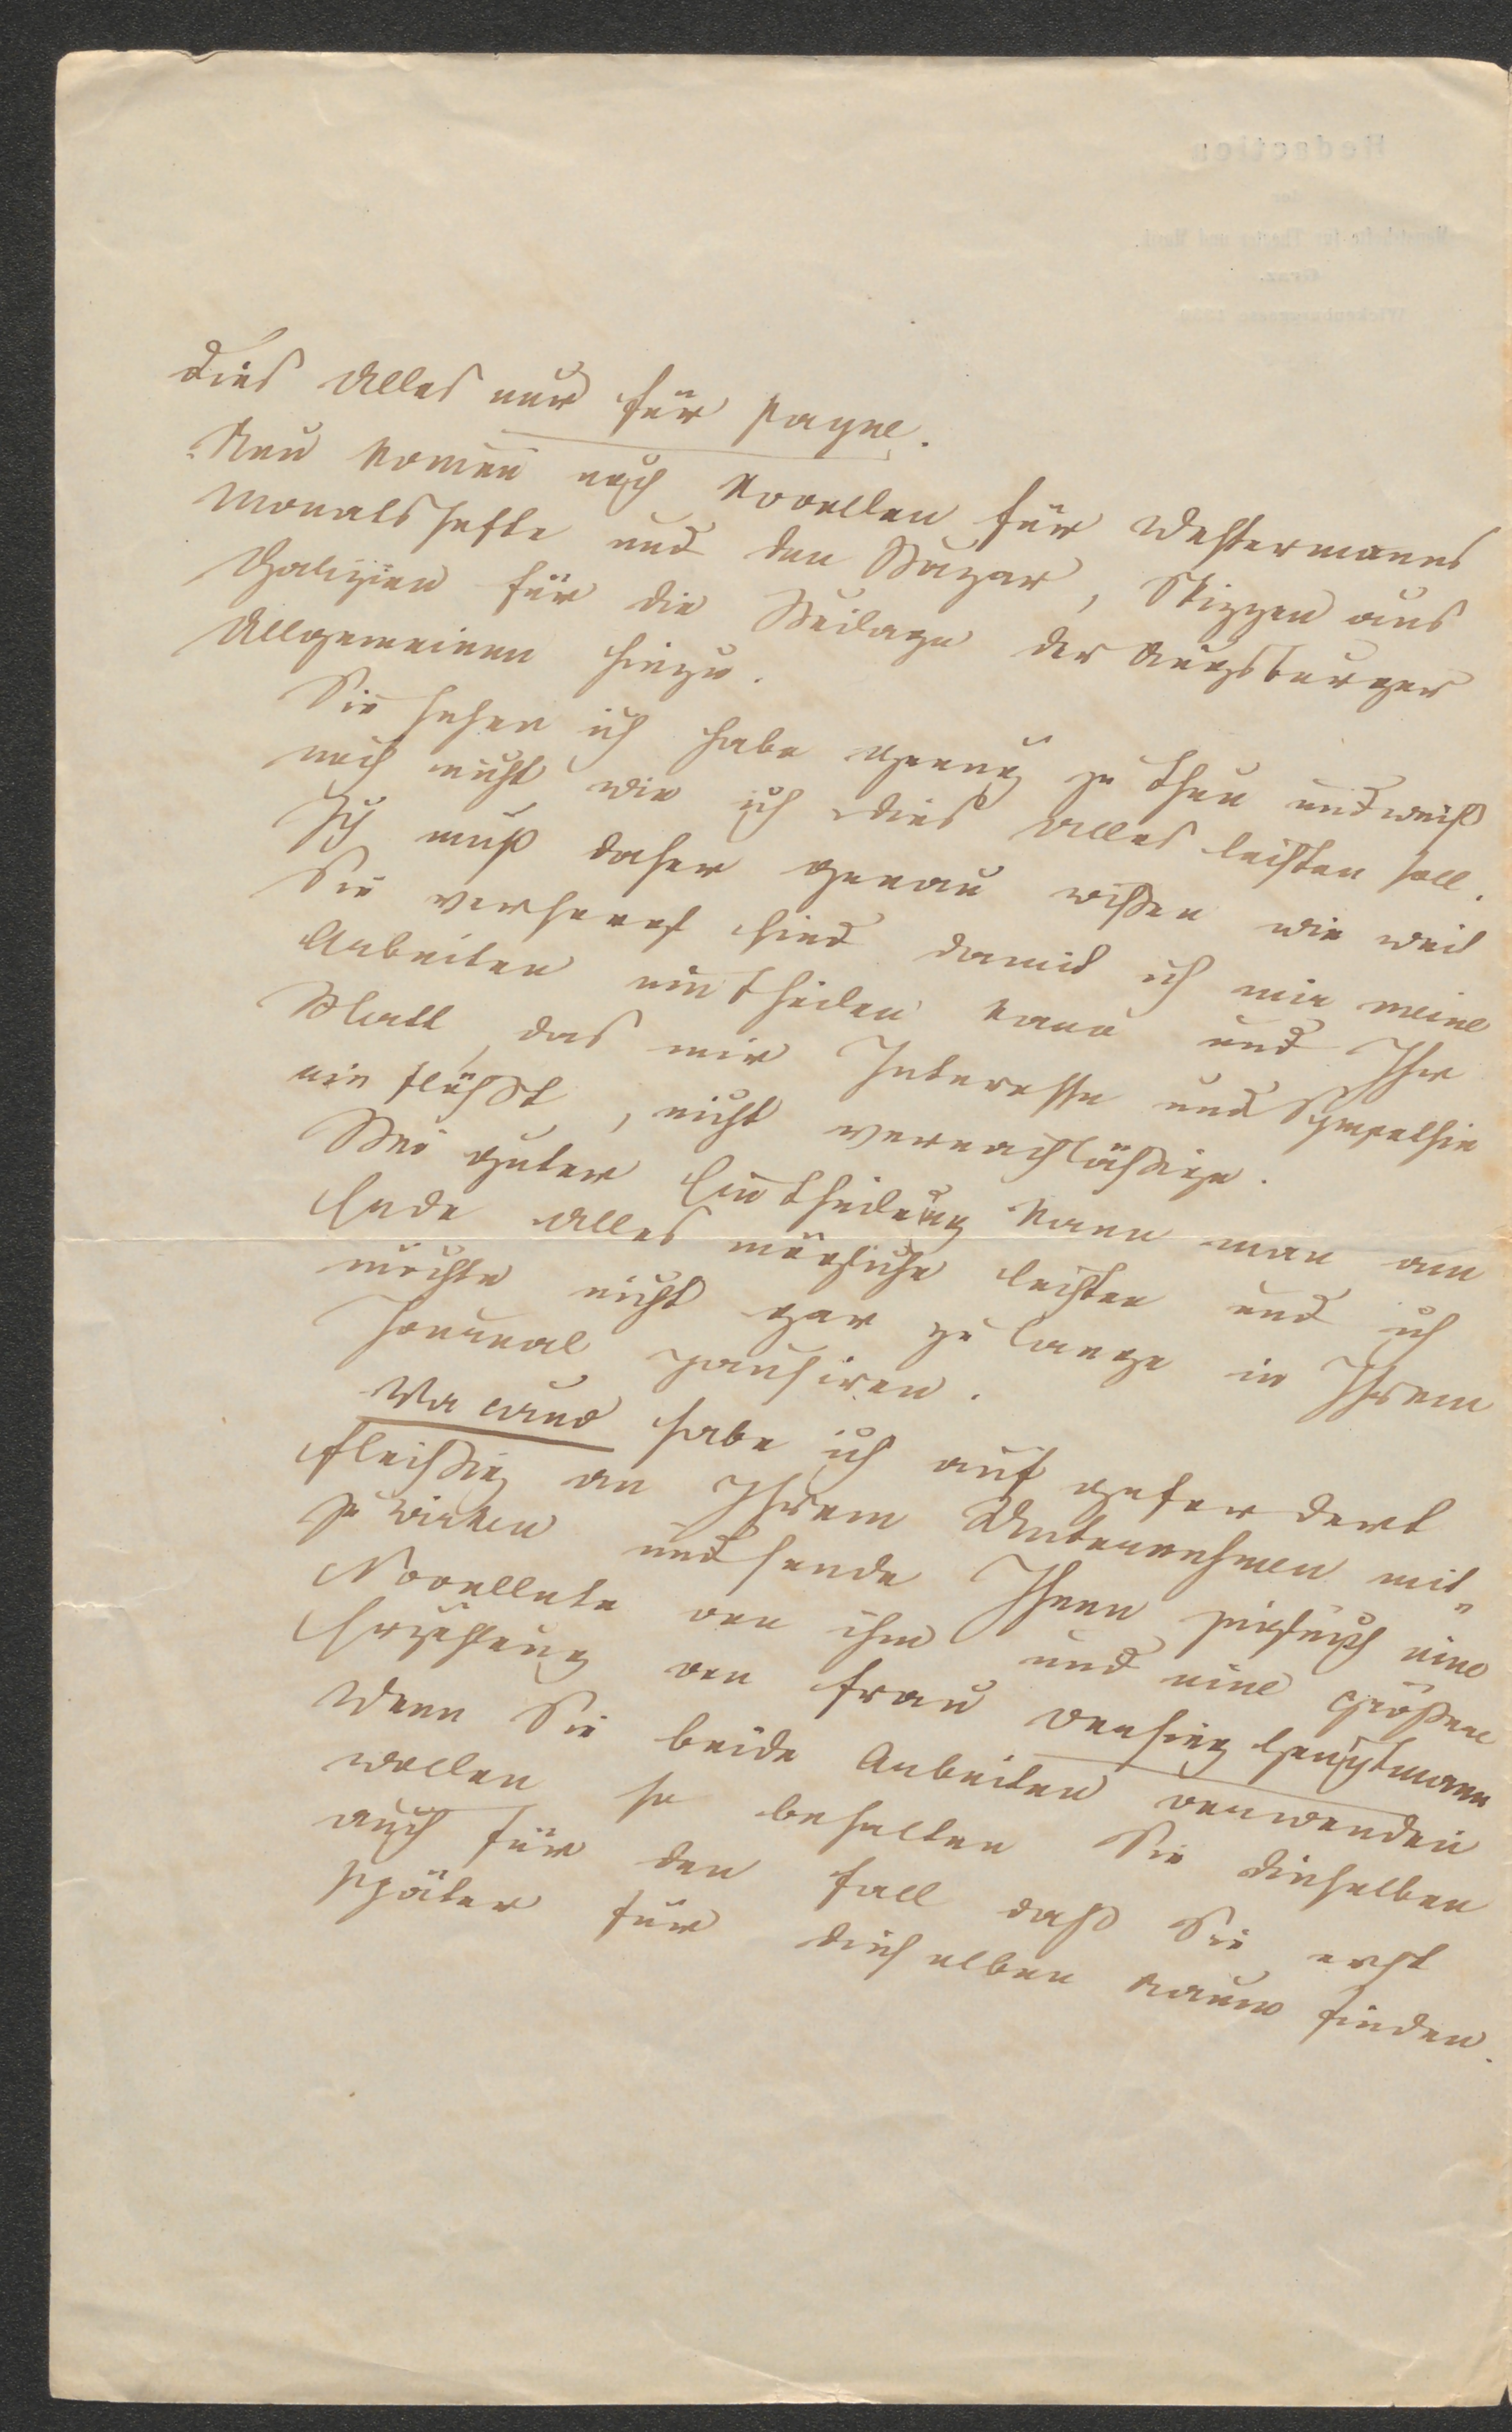 Dies Alles nur für Payne.
Nun kommen noch Novellen für Westermanns
Monatshefte und den Bazar, Skizzen aus
Galizien für die Beilage der Augsburger
Allgemeinen hinzu.
Sie sehen ich habe genug zu thun und weiß
noch nicht wie ich dies Alles leisten soll.
Ich muß daher genau wißen wie weit
Sie versorgt sind damit ich mir meine
Arbeiten eintheilen kann und Ihr
Blatt, das mir Interesse und Sympathie
einflößt, nicht vernachläßige.
Bei guter Eintheilung kann man am
Ende alles mögliche leisten und ich
möchte nicht gar zu lange in Ihrem
Journal pausiren.
Vacano habe ich aufgefordert
fleißig an Ihrem Unternehmen mit-
zuwirken und sende Ihnen zugleich eine
Novellete von ihm und eine größere
Erzählung von Frau Hauptmann
Wenn Sie beide Arbeiten verwenden
wollen so behalten Sie dieselben
auch für den Fall daß Sie erst
später für dieselben Raum finden.
Redaction
der
Monatshefte für Theater und Musik
Graz.